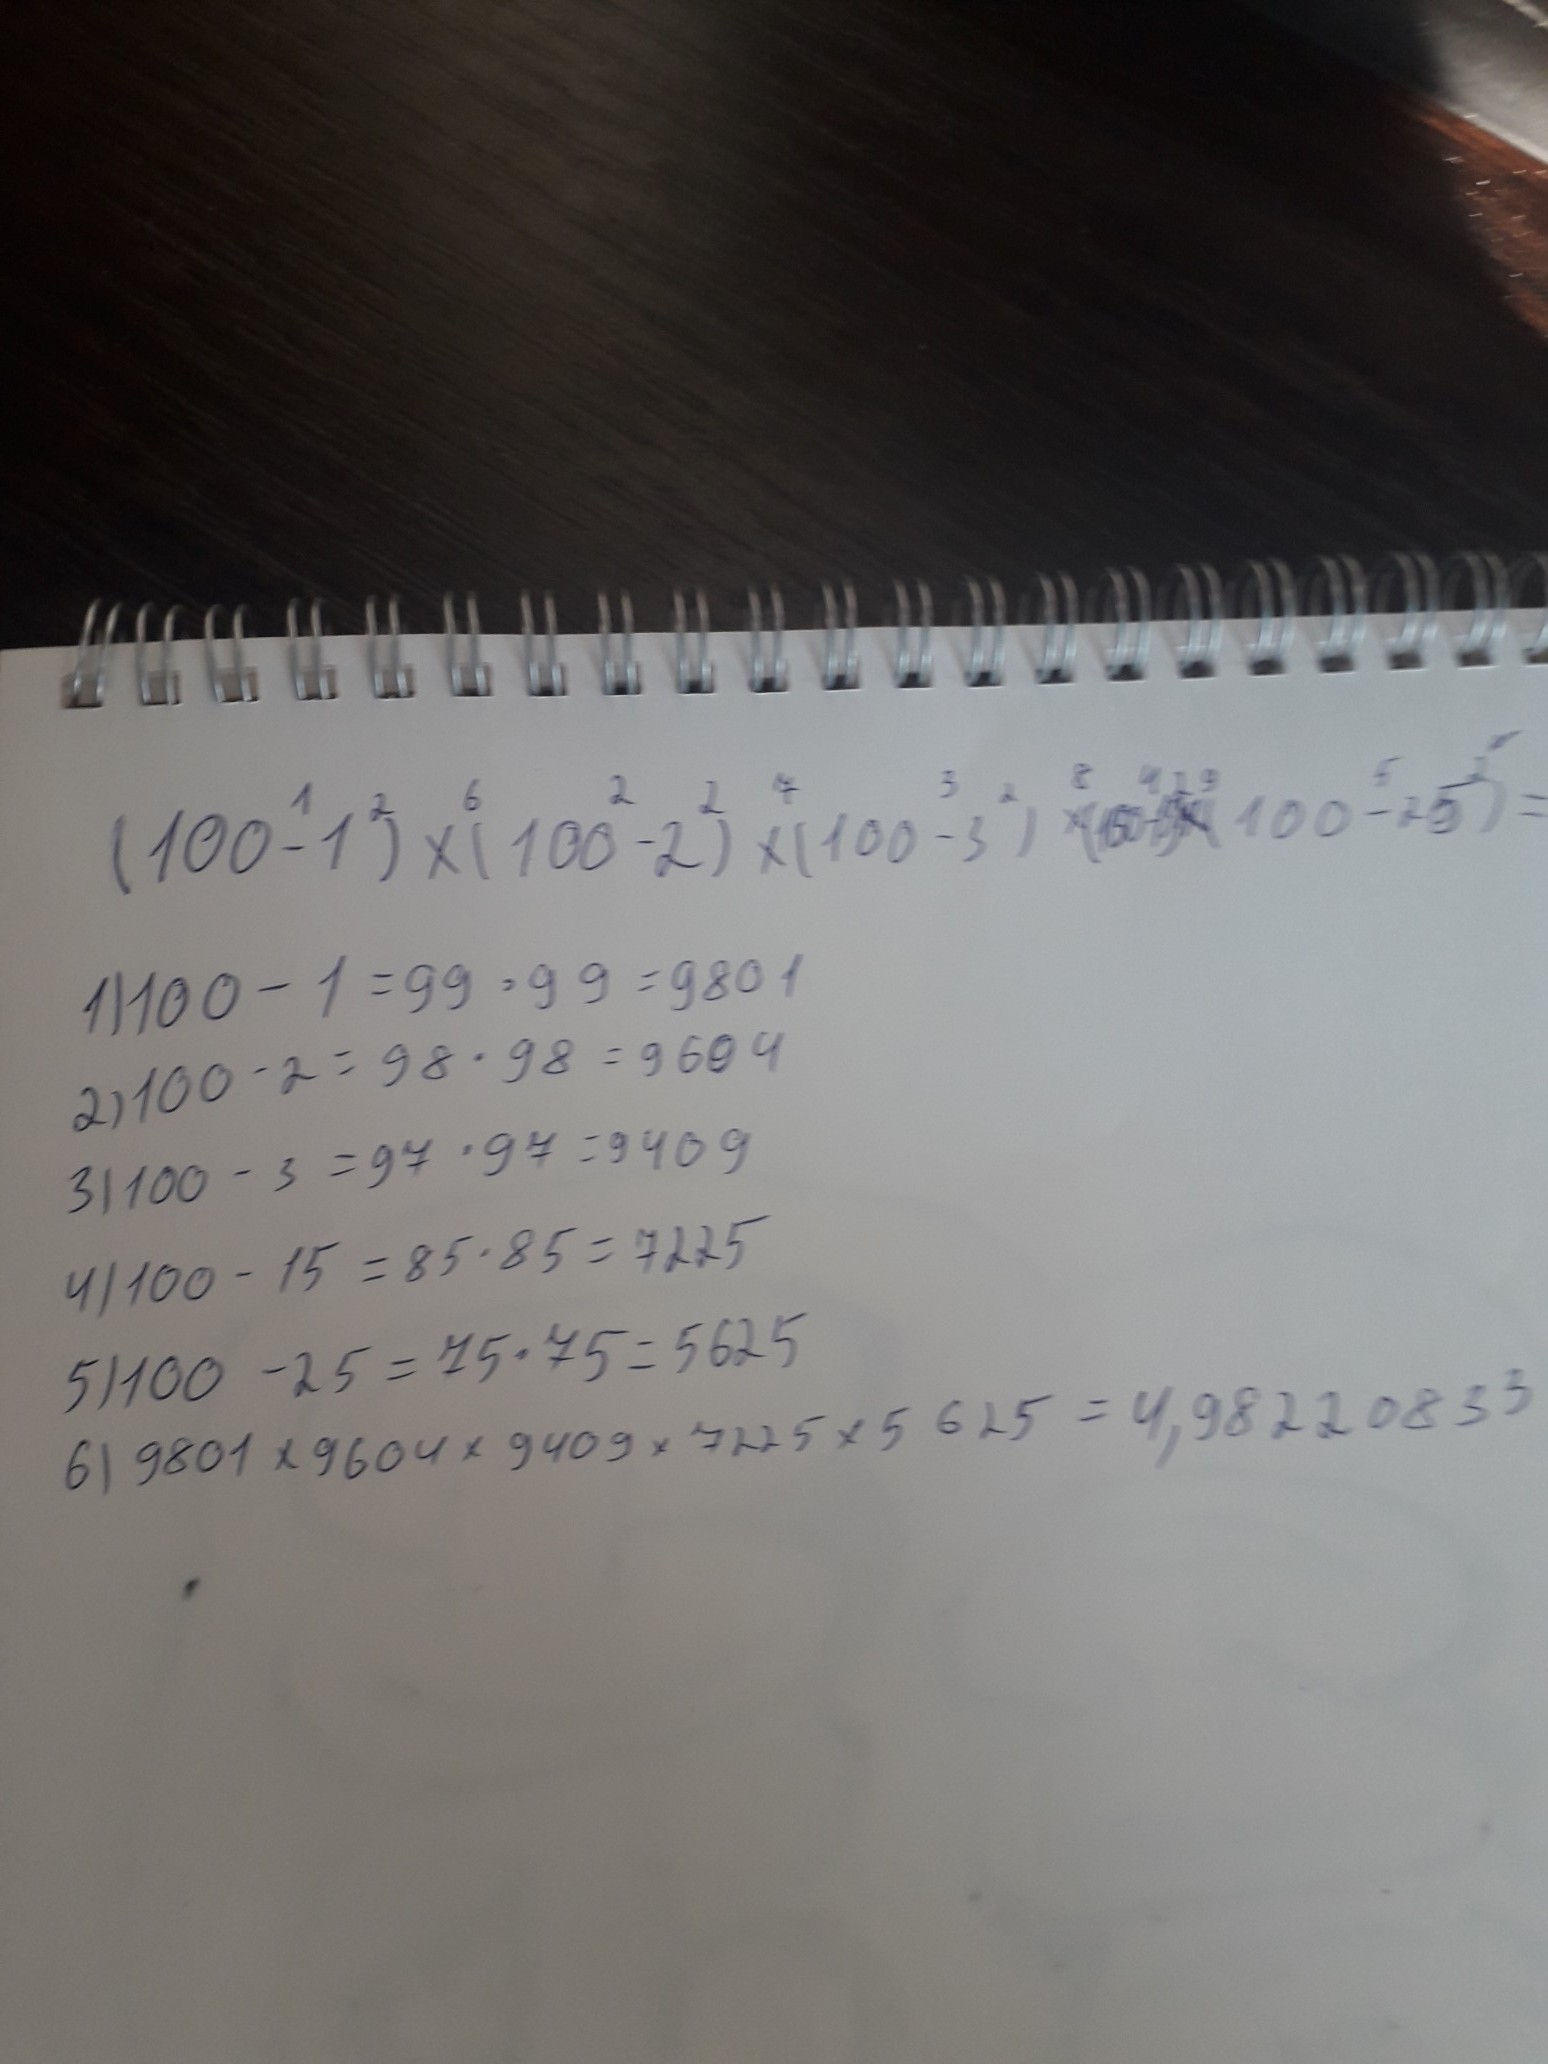 1 2 6 2 2 7 3 2 8 4 2 9 5 2
(100-1²)×(100-2²)×(100-3²) ×( 100-25²)=
1)100-1=99·99=9801
2)100-2=98·98=9604
3)100-3=97·97=9409
4)100-15=85·85=7225
5)100-25=75·75=5625
6)9801×9604×9409×7225×5625=4,98220833